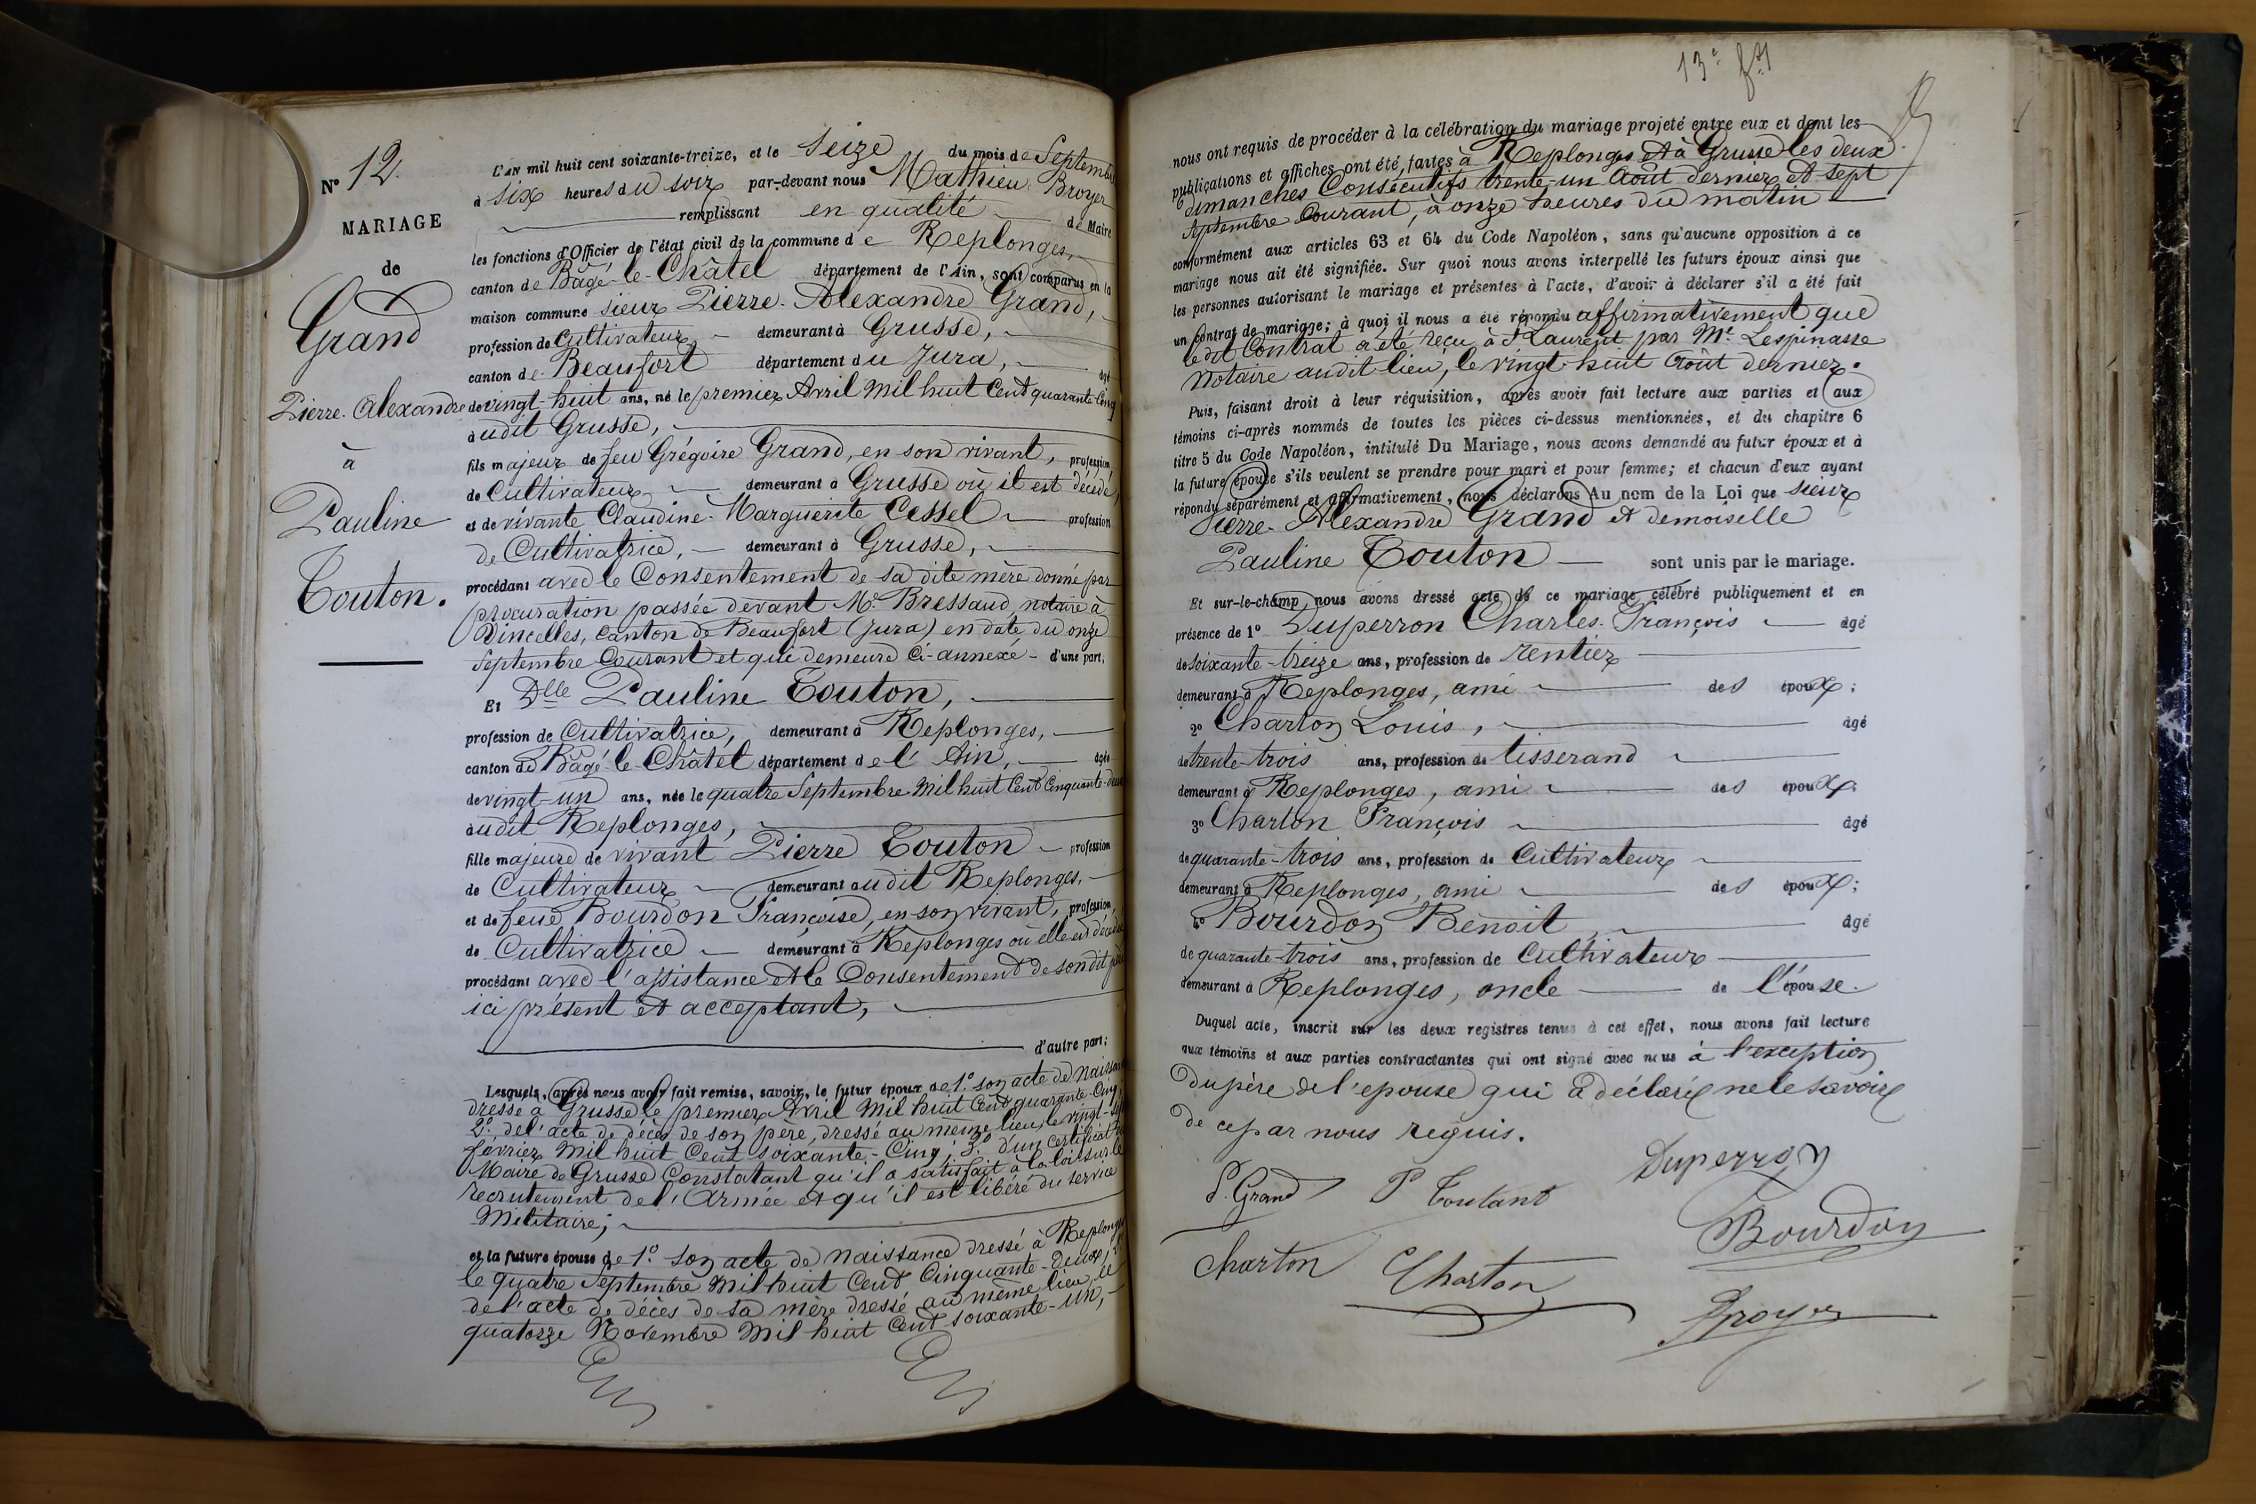 N° 12.
MARIAGE
de
Grand
Pierre-Alexandre
à
Pauline
Touton.
L'AN mil huit cent soixante-treize, et le Seize du mois de Septembre
à six heures du soir par-devant nous Mathieu Broyer
remplissant en qualité de Maire
les fonctions d'Officier de l'état civil de la commune de Replonges,
canton de Bâgé-le-Châtel département de l'Ain, sont comparus en la
maison commune sieur Pierre-Alexandre Grand,
profession de Cultivateur demeurant à Grusse,
canton de Beaufort département du Jura, âgé
de vingt-huit ans, né le premier Avril Mil huit Cent quarante-Cinq
audit Grusse,
fils majeur de feu Grégoire Grand, en son vivant, profession
de Cultivateur demeurant à Grusse où il est décédé,
et de vivante Claudine-Marguerite Cessel profession
de Cultivatrice, demeurant à Grusse,
procédant avec le Consentement de sa dite mère donné par
procuration passée devant Me Bressaud, notaire à
Vincelles, canton de Beaufort (Jura) en date du onze
Septembre Courant et qui demeure Ci-annexé - d'une part,
Et Dlle Pauline Touton,
profession de Cultivatrice, demeurant à Replonges,
canton de Bâgé-le-Châtel département de l'Ain, âgée
de vingt-un ans, née le quatre Septembre Mil huit Cent Cinquante-deux
audit Replonges,
fille majeure de vivant Pierre Touton profession
de Cultivateur demeurant audit Replonges,
et de feue Bourdon Françoise, en son vivant, profession
de Cultivatrice demeurant à Replonges où elle est décédée
procédant avec l'assistance et le Consentement de son dit père
ici présent et acceptant,
d'autre part;
Lesquels, après nous avoir fait remise, savoir, le futur époux de 1.° son acte de Naissance
dressé à Grusse le premier Avril Mil huit Cent quarante-Cinq;
2.° de l'acte de décès de son père, dressé au même lieu, le vingt-sept
février Mil huit Cent soixante-Cinq; 3.° d'un certificat du
Maire de Grusse Constatant qu'il a satisfait à la loi sur le
recrutement de l'Armée et qu'il est libéré du service
Militaire;
et la future épouse de 1.° son acte de Naissance dressé à Replonges
le quatre Septembre Mil huit Cent Cinquante-deux; 2.°
de l'acte de décès de sa mère dressé au même lieu, le
quatorze Novembre Mil huit Cent soixante-un,
13e ft
nous ont requis de procéder à la célébration du mariage projeté entre eux et dont les
publications et affiches ont été faites à Replonges et à Grusse les deux
dimanches Consécutifs trente-un Août dernier et sept
Septembre Courant, à onze heures du matin
conformément aux articles 63 et 64 du Code Napoléon, sans qu'aucune opposition à ce
mariage nous ait été signifiée. Sur quoi nous avons interpellé les futurs époux ainsi que
les personnes autorisant le mariage et présentes à l'acte, d'avoir à déclarer s'il a été fait
un contrat de mariage; à quoi il nous a été répondu affirmativement que
le dit Contrat a été reçu à St Laurent par Me Lespinasse
Notaire audit lieu, le vingt-huit Août dernier.
Puis, faisant droit à leur réquisition, après avoir fait lecture aux parties et aux
témoins ci-après nommés de toutes les pièces ci-dessus mentionnées, et du chapitre 6
titre 5 du Code Napoléon, intitulé Du Mariage, nous avons demandé au futur époux et à
la future épouse s'ils veulent se prendre pour mari et pour femme; et chacun d'eux ayant
répondu séparément et affirmativement, nous déclarons Au nom de la Loi que sieur
Pierre-Alexandre Grand et demoiselle
Pauline Touton sont unis par le mariage.
Et sur-le-champ nous avons dressé acte de ce mariage célébré publiquement et en
présence de 1° Duperron Charles-François âgé
de soixante-treize ans, profession de rentier
demeurant à Replonges, ami des époux;
2° Charton Louis, âgé
de trente-trois ans, profession de tisserand
demeurant à Replonges, ami des époux;
3° Charton François âgé
de quarante-trois ans, profession de Cultivateur
demeurant à Replonges, ami des époux;
4° Bourdon Benoit âgé
de quarante-trois ans, profession de Cultivateur
demeurant à Replonges, oncle de l'épouse.
Duquel acte, inscrit sur les deux registres tenus à cet effet, nous avons fait lecture
aux témoins et aux parties contractantes qui ont signé avec nous à l'exception
du père de l'épouse qui a déclaré ne le savoir
de ce par nous requis.
P. Grand P Toutant Duperron
Bourdon
Charton Charton
Broyer